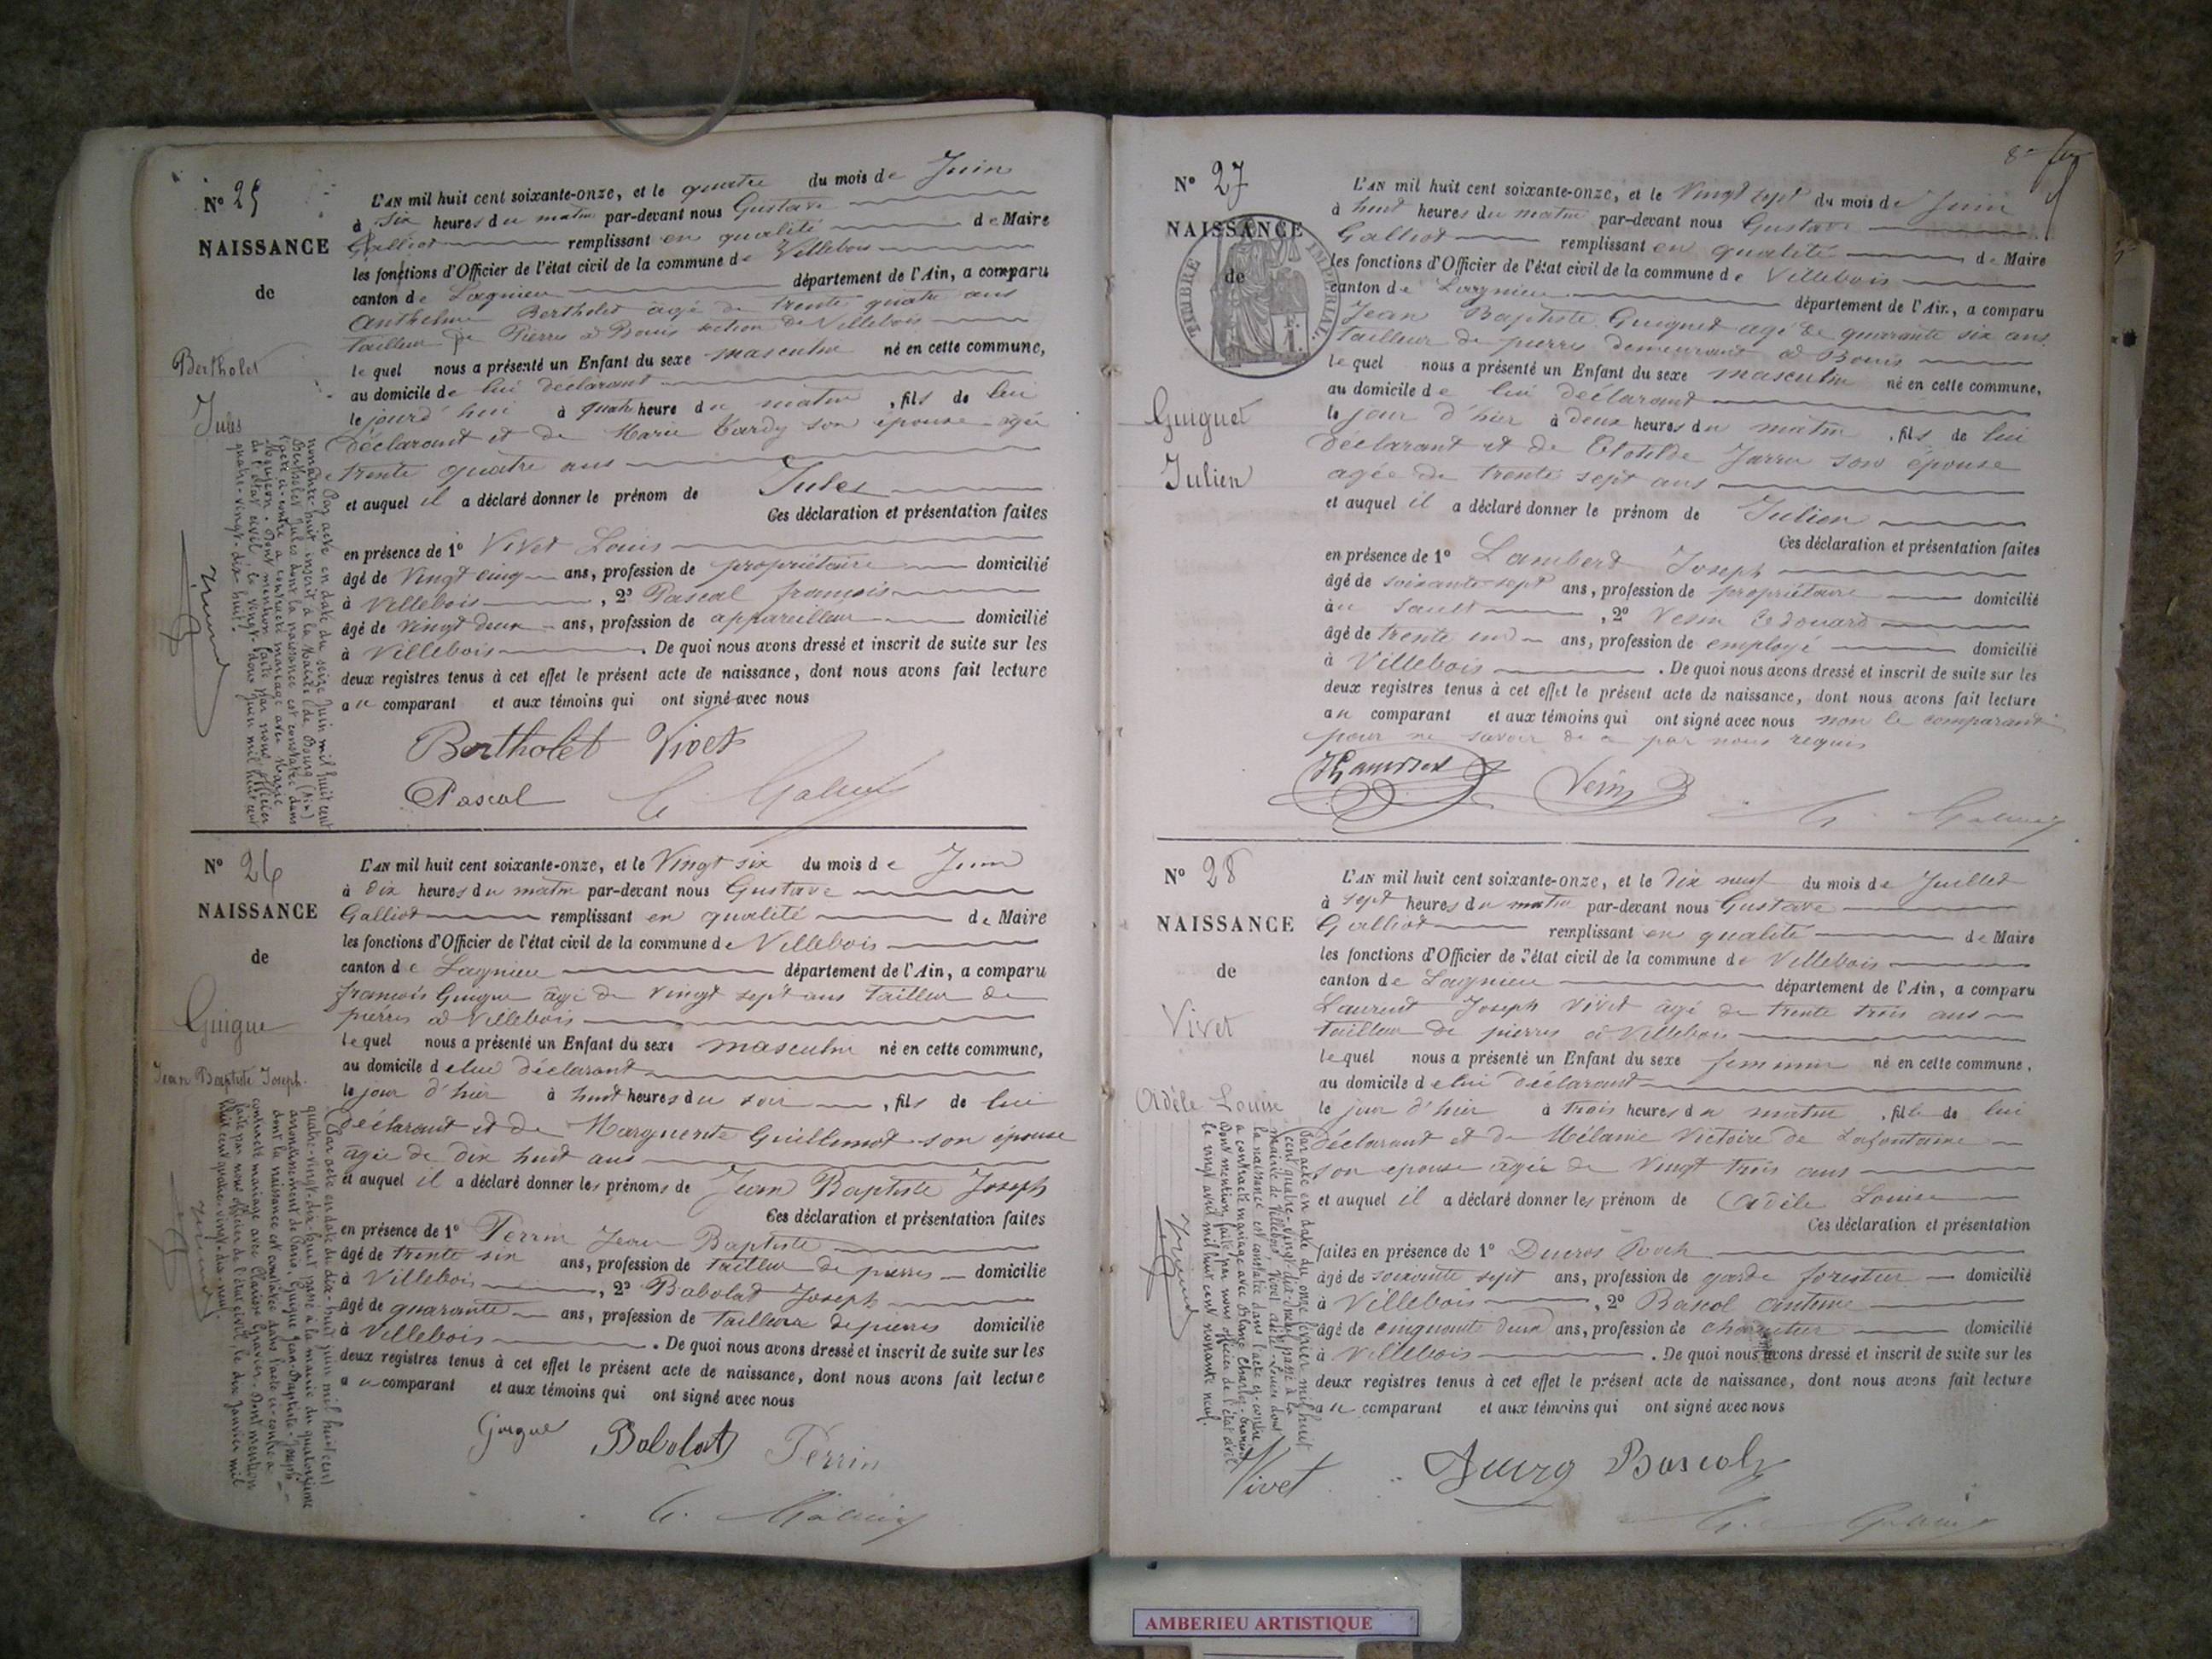 N° 25
NAISSANCE
de
Bertholet
Jules
L'AN mil huit cent soixante-onze, et le quatre du mois de Juin
à six heures du matin par-devant nous Gustave
Galliot remplissant en qualité de Maire
les fonctions d'Officier de l'état civil de la commune de Villebois
canton de Lagnieu département de l'Ain, a comparu
Anthelme Bertholet âgé de trente quatre ans
tailleur de Pierres à Bouis section de Villebois
lequel nous a présenté un Enfant du sexe masculin né en cette commune,
au domicile de lui déclarant
le jourd'hui à quatre heure du matin, fils de lui
déclarant et de Marie Tardy son épouse agée
trente quatre ans
et auquel il a déclaré donner le prénom de Jules
Ces déclaration et présentation faites
en présence de 1° Vivet Louis
âgé de Vingt cinq ans, profession de propriétaire domicilié
à Villebois, 2° Pascal françois
âgé de vingt deux ans, profession de appareilleur domicilié
à Villebois. De quoi nous avons dressé et inscrit de suite sur les
deux registres tenus à cet effet le présent acte de naissance, dont nous avons fait lecture
au comparant et aux témoins qui ont signé avec nous
Bertholet Vivet
Pascal G. Galliot
Par acte en date du seize Juin mil huit cent
nonante-huit inscrit à la Mairie de Bourg (Ain)
Bertholet Jules dont la naissance est constatée dans
l'acte ci-contre a contracté mariage avec Marie
Dont mention faite par nous officier
de l'état civil, le vingt-deux Juin mil huit cent
quatre-vingt-dix-huit.
N° 26
NAISSANCE
de
Guigue
Jean Baptiste Joseph
L'AN mil huit cent soixante-onze, et le Vingt six du mois de Juin
à dix heures du matin par-devant nous Gustave
Galliot remplissant en qualité de Maire
les fonctions d'Officier de l'état civil de la commune de Villebois
canton de Lagnieu département de l'Ain, a comparu
françois Guigue âgé de vingt sept ans tailleur de
pierres à Villebois
lequel nous a présenté un Enfant du sexe masculin né en cette commune,
au domicile de lui déclarant
le jour d'hier à huit heures du soir, fils de lui
déclarant et de Marguerite Guillemot son épouse
âgée de dix huit ans
et auquel il a déclaré donner les prénoms de Jean Baptiste Joseph
Ces déclaration et présentation faites
en présence de 1° Perrin Jean Baptiste
âgé de trente six ans, profession de tailleur de pierres domicilié
à Villebois, 2° Babolat Joseph
âgé de quarante ans, profession de tailleur de pierres domicilié
à Villebois. De quoi nous avons dressé et inscrit de suite sur les
deux registres tenus à cet effet le présent acte de naissance, dont nous avons fait lecture
au comparant et aux témoins qui ont signé avec nous
Guigue Babolat Perrin
G. Galliot
Par acte en date du dix-huit juin mil huit cent
quatre-vingt-dix-huit passé à la mairie du quatorzième
arrondissement de Paris, Guigue Jean-Baptiste-Joseph
dont la naissance est constatée dans l'acte ci-contre a
contracté mariage avec Clarisse Gravier. Dont mention
faite par nous officier de l'état civil, le dix Janvier mil
huit cent quatre-vingt-dix-neuf.
N° 27
NAISSANCE
de
TIMBRE IMPERIAL
Guiguet
Julien
L'AN mil huit cent soixante-onze, et le Vingt sept du mois de Juin
à huit heures du matin par-devant nous Gustave
Galliot remplissant en qualité de Maire
les fonctions d'Officier de l'état civil de la commune de Villebois
canton de Lagnieu département de l'Ain, a comparu
Jean Baptiste Guiguet agé de quarante six ans
tailleur de pierres demeurant à Bouis
lequel nous a présenté un Enfant du sexe masculin né en cette commune,
au domicile de lui déclarant
le jour d'hier à deux heures du matin, fils de lui
déclarant et de Clotilde Jarru son épouse
agée de trente sept ans
et auquel il a déclaré donner le prénom de Julien
Ces déclaration et présentation faites
en présence de 1° Lambert Joseph
âgé de soixante-sept ans, profession de propriétaire domicilié
àu Sault, 2° Vesin Edouard
âgé de trente un ans, profession de employé domicilié
à Villebois. De quoi nous avons dressé et inscrit de suite sur les
deux registres tenus à cet effet le présent acte de naissance, dont nous avons fait lecture
au comparant et aux témoins qui ont signé avec nous non le comparant
pour ne savoir de ce par nous requis
Vesin G. Galliot
N° 28
NAISSANCE
de
Vivet
Adèle Louise
L'AN mil huit cent soixante-onze, et le dix neuf du mois de Juillet
à sept heures du matin par-devant nous Gustave
Galliot remplissant en qualité de Maire
les fonctions d'Officier de l'état civil de la commune de Villebois
canton de Lagnieu département de l'Ain, a comparu
Laurent Joseph Vivet âgé de trente trois ans
tailleur de pierres à Villebois
lequel nous a présenté un Enfant du sexe feminin né en cette commune,
au domicile de lui déclarant
le jour d'hier à trois heures du matin, fille de lui
déclarant et de Mélanie Victoire de Lafontaine
son epouse âgée de vingt trois ans
et auquel il a déclaré donner les prénom de Adèle Louise
Ces déclaration et présentation
faites en présence de 1° Ducros
âgé de soixante sept ans, profession de garde forestier domicilié
à Villebois, 2° Bascol Antime
âgé de cinquante deux ans, profession de charcutier domicilié
à Villebois. De quoi nous avons dressé et inscrit de suite sur les
deux registres tenus à cet effet le présent acte de naissance, dont nous avons fait lecture
au comparant et aux témoins qui ont signé avec nous
Vivet Bascol
G. Galliot
Par acte en date du onze février mil huit
cent quatre-vingt-dix-neuf passé à la
mairie de Villebois, Vivet Adèle-Louise dont
la naissance est constatée dans l'acte ci-contre
a contracté mariage avec Blanc Charles
Dont mention faite par nous officier de l'état civil
le vingt avril mil huit cent nonante neuf.
AMBERIEU ARTISTIQUE